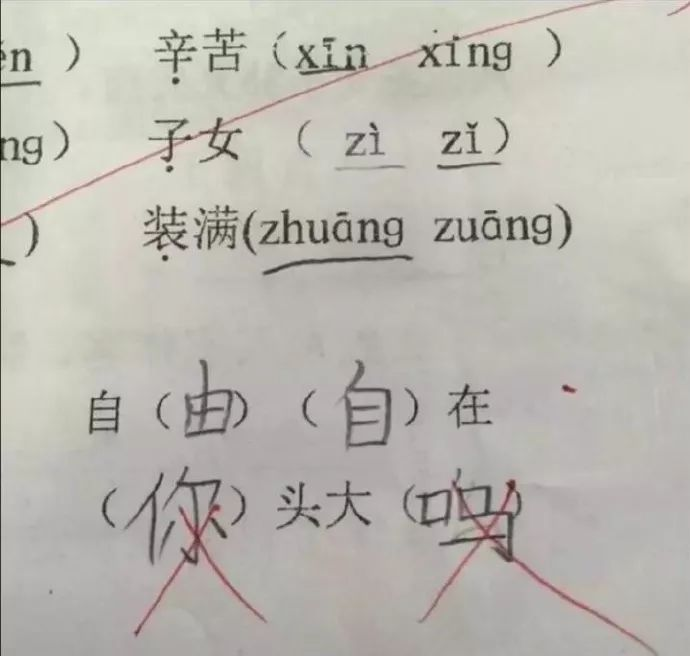 én ) 辛苦 (xīn xing )
ng) 子女 ( zì zǐ)
) 装满(zhuāng zuāng)
自 (由) (自) 在
(你) 头大 (吗)